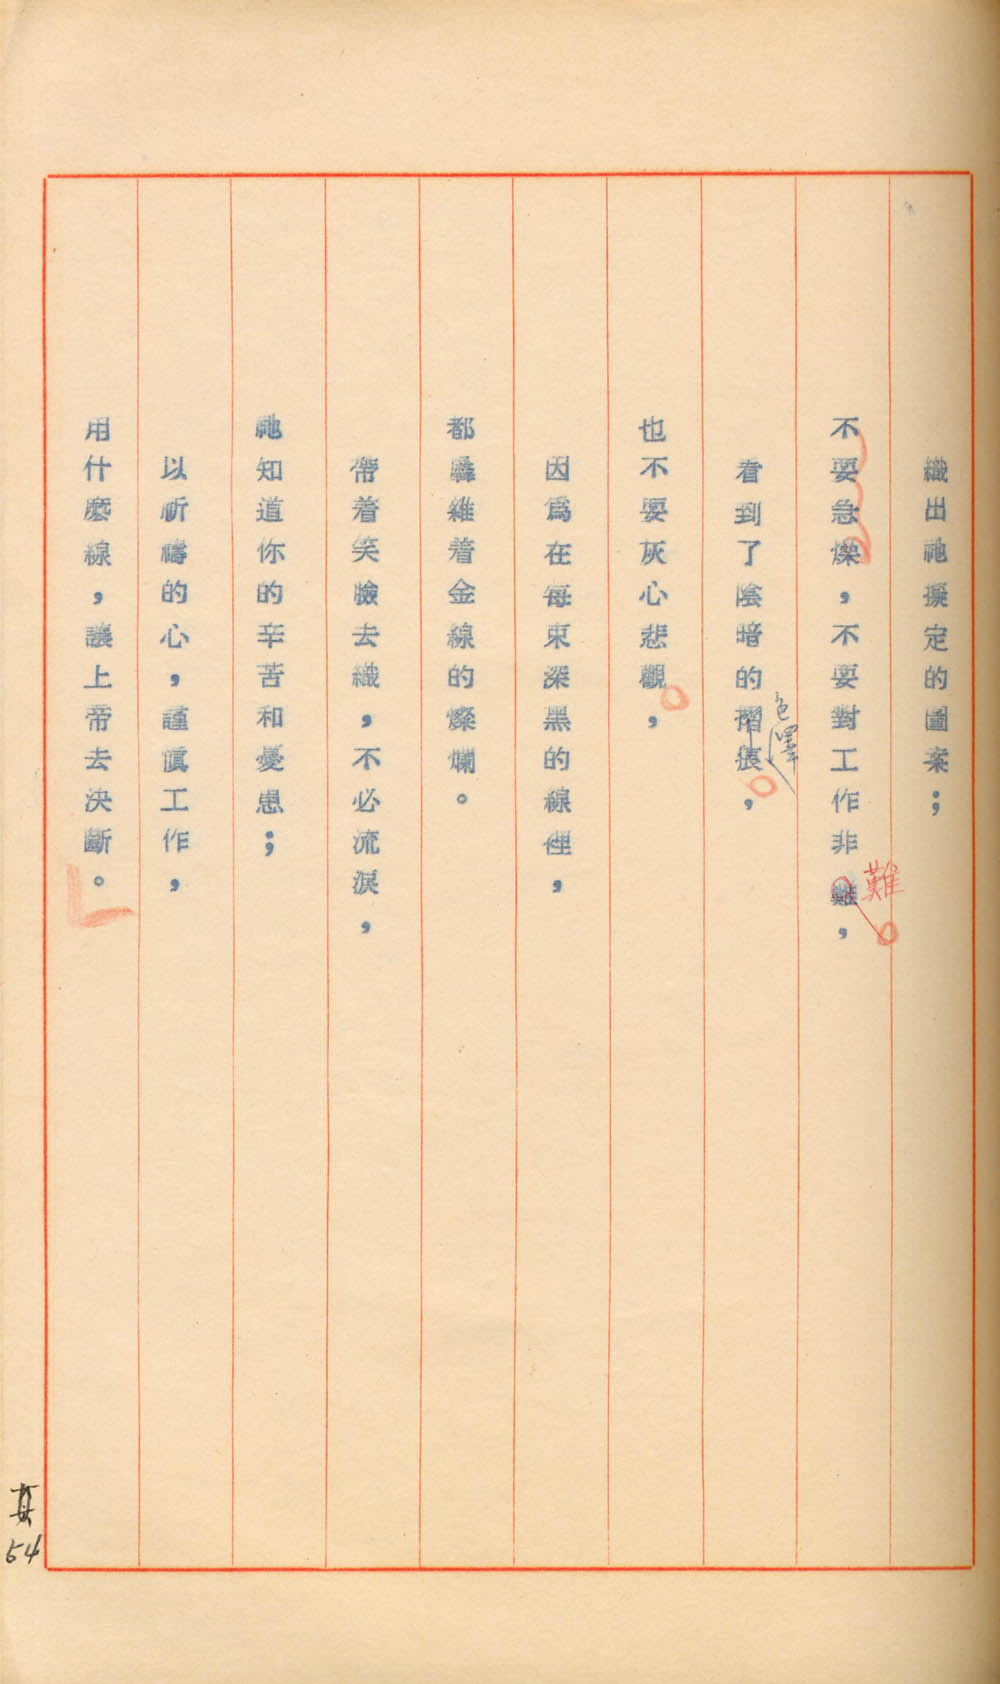 織出祂擬定的圖案；
不要急燥，不要對工作非難，
難
看到了陰暗的摺痕，
色澤
也不要灰心悲觀，
因爲在每束深黑的線裡，
都羼雜着金線的燦爛。
帶着笑臉去織，不必流淚，
祂知道你的辛苦和憂患；
以祈禱的心，謹愼工作，
用什麽線，讓上帝去決斷。
真
54